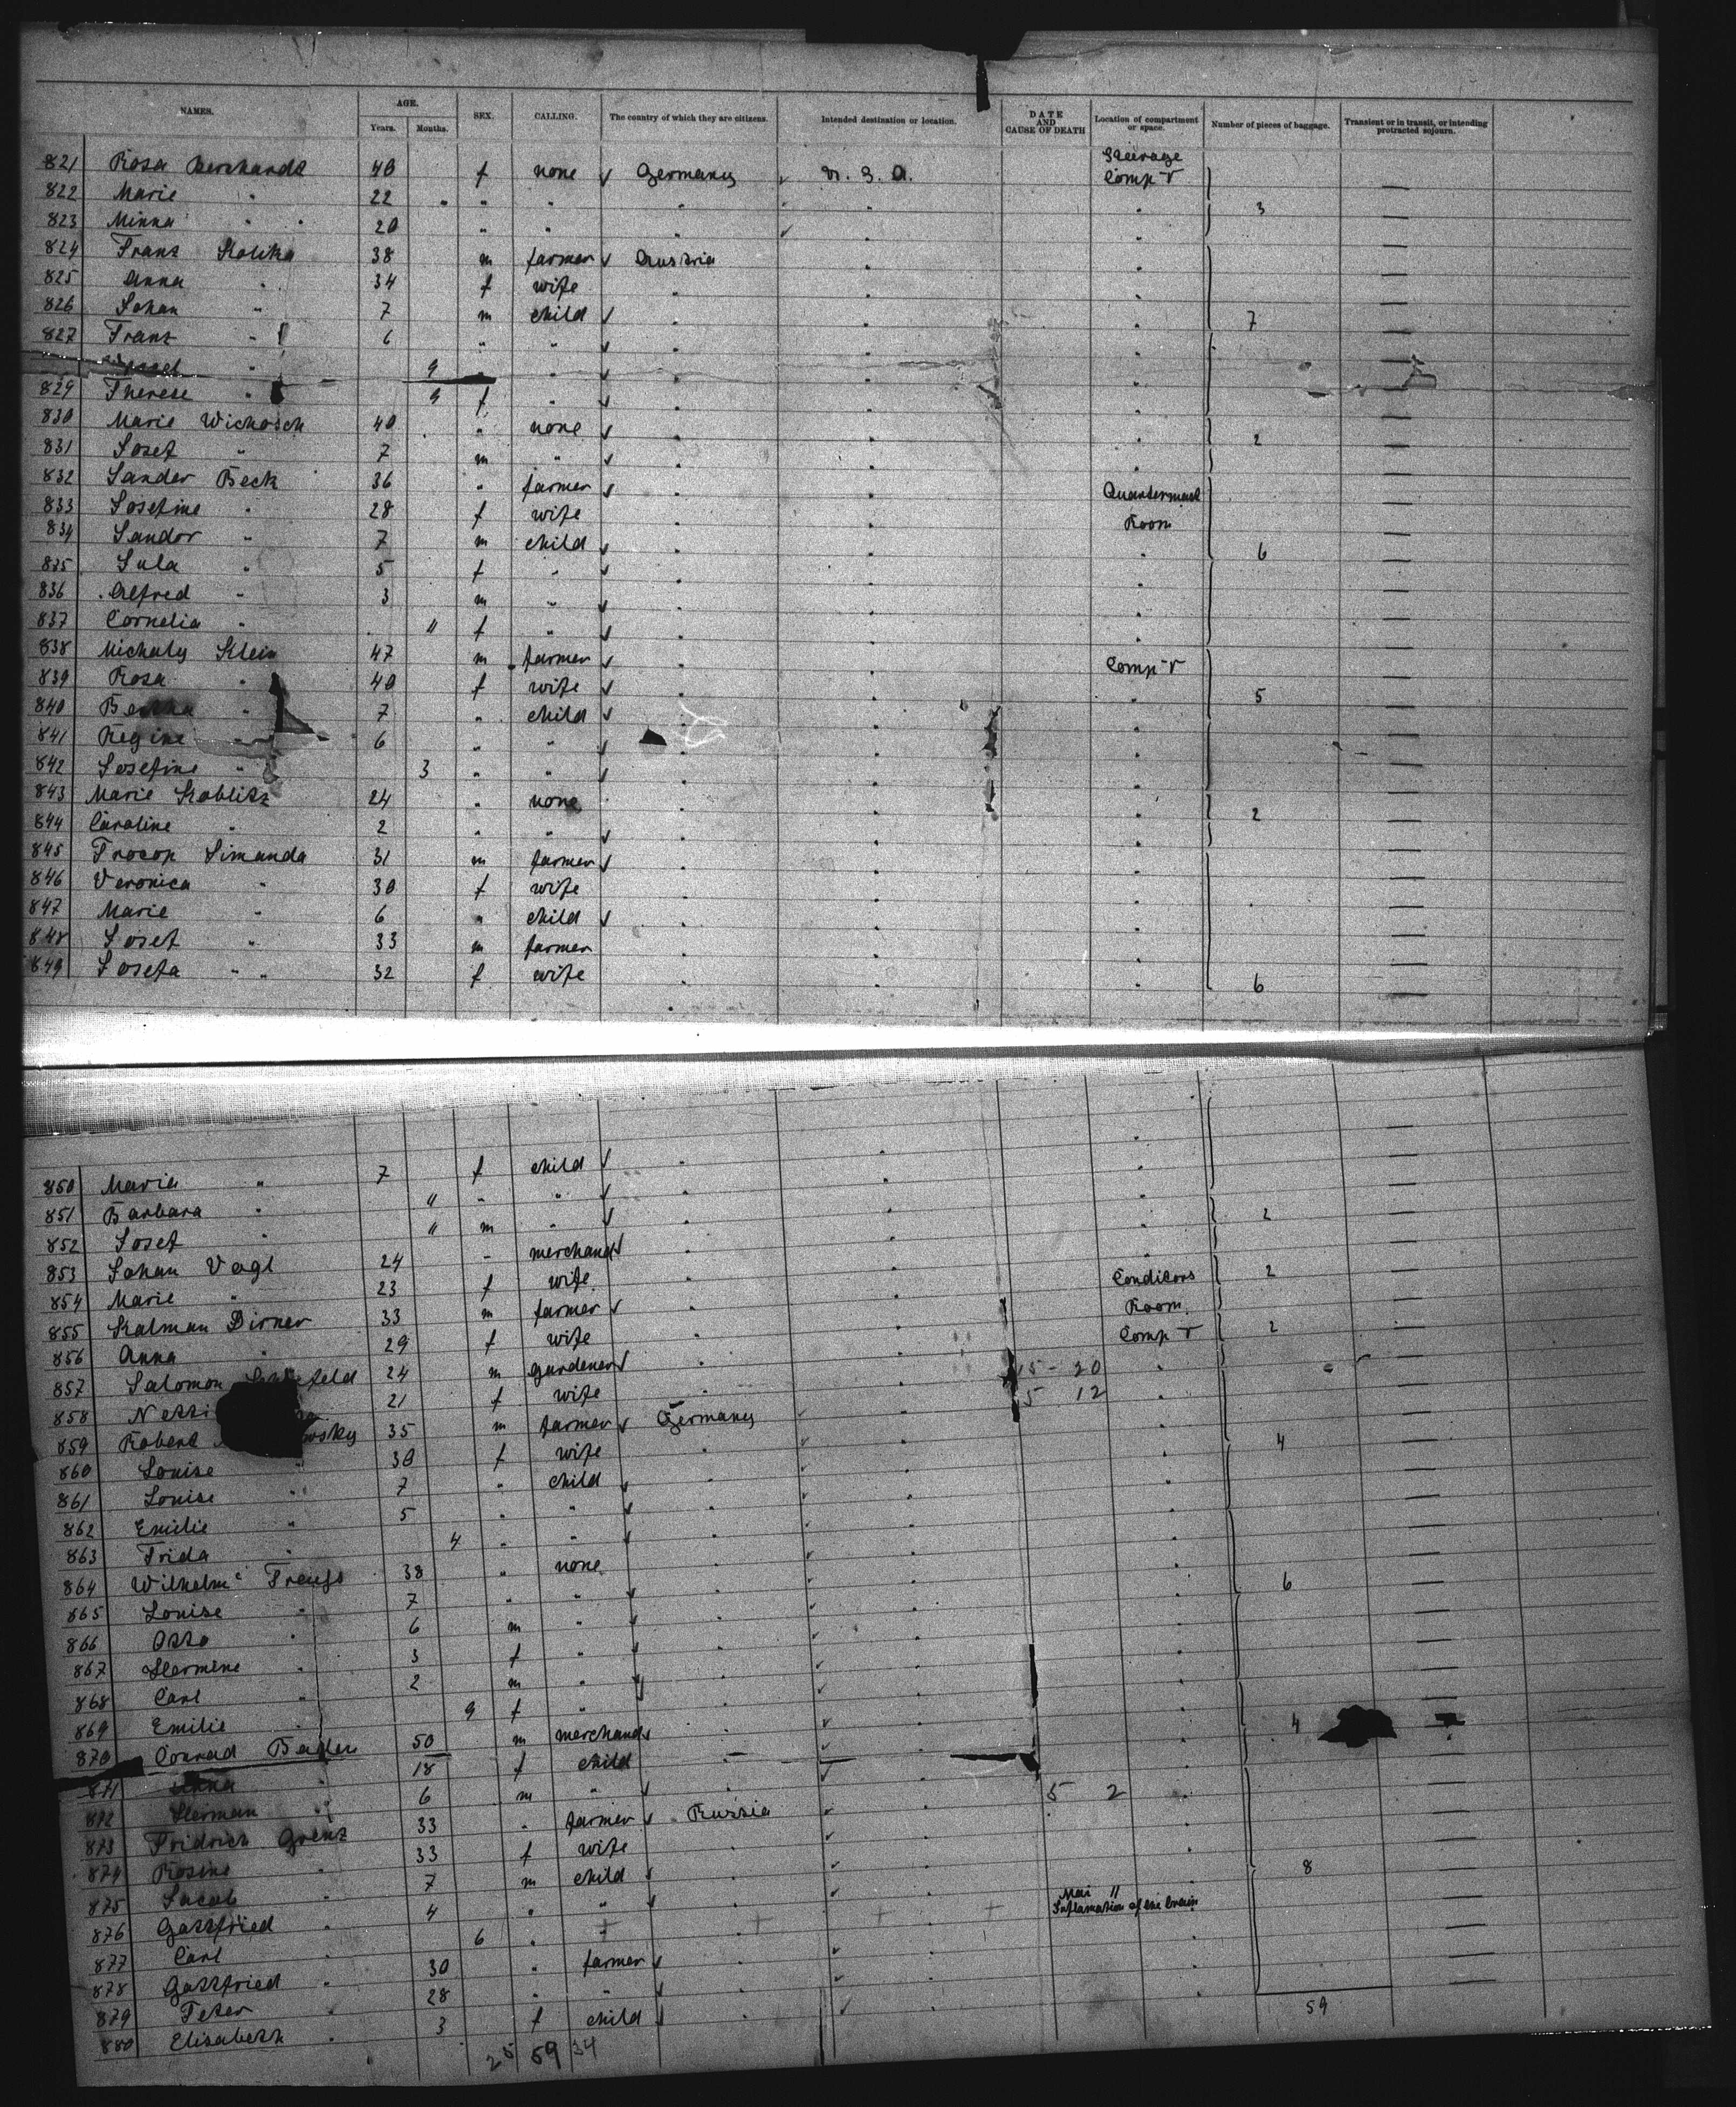 NAMES. AGE. SEX. CALLING. The country of which they are citizens. Intended destination or location. DATE AND CAUSE OF DEATH Location of compartment or space. Number of pieces of baggage. Transient or in transit, or intending protracted sojourn.
Years. Months.
Steerage
821 Rosa 40 f none ✓ Germany ✓ U. S. A. Comp V —
822 Marie " 22 " " " " ✓ " " 3 —
823 Minna " " 20 " " " ✓ " " —
824 Franz Kolika 38 m farmer ✓ Austria " " —
825 Anna " 34 f wife " " " —
826 Johan " 7 m child ✓ " " " 7 —
827 Franz " 6 " " ✓ " " " —
" 9 " " ✓ " " " —
829 Therese " 9 f " ✓ " " " —
830 Marie Wichosch 40 " none ✓ " " " 2 —
831 Josef " 7 m " ✓ " " " —
832 Sandor Beck 36 " farmer ✓ " " Quartermast —
833 Josefine " 28 f wife " " Room —
834 Sandor " 7 m child ✓ " " " 6 —
835 Jula " 5 f " ✓ " " " —
836 Alfred " 3 m " ✓ " " " —
837 Cornelia " 11 f " ✓ " " " —
838 Michaly Klein 47 m farmer ✓ " " Comp V —
839 Rosa " 40 f wife ✓ " " " 5 —
840 Bertha " 7 " child ✓ " " " —
841 Regine " 6 " " ✓ " " " —
842 Josefine " 3 " " ✓ " " " —
843 Marie Koblitz 24 " none " " " 2 —
844 Caroline " 2 " " ✓ " " " —
845 Procop Simanda 31 m farmer ✓ " " " —
846 Veronica " 30 f wife " " " —
847 Marie " 6 " child ✓ " " " —
848 Josef " 33 m farmer " " " —
849 Josefa " " 32 f wife " " " 6 —
850 Maria " 7 f child ✓ " " " —
851 Barbara " 11 " " ✓ " " " —
852 Josef " 11 m " ✓ " " " 2 —
853 Johan Vogl 24 " merchand ✓ " " " —
854 Marie " 23 f wife " " Conditors 2 —
855 Kalman Dirner 33 m farmer ✓ " " Room —
856 Anna " 29 f wife " " Comp V 2 —
857 Salomon 24 m gardener ✓ " " 15 - 20 " —
858 21 f wife " " 5 12 " —
859 Robert 35 m farmer ✓ Germany ✓ " " 4 —
860 Louise " 30 f wife " ✓ " " —
861 Louise " 7 " child ✓ " ✓ " " —
862 Emilie " 5 " " ✓ " ✓ " " —
863 Frida " 4 " " ✓ " ✓ " " —
864 Wilhelm Preuss 38 " none " ✓ " " 6 —
865 Louise " 7 " " ✓ " ✓ " " —
866 Otto " 6 m " ✓ " ✓ " " —
867 Hermine " 3 f " ✓ " ✓ " " —
868 Carl " 2 m " ✓ " ✓ " " —
869 Emilie " 9 f " " ✓ " " 4 —
870 Conrad Bader 50 m merchand ✓ " ✓ " " —
871 Anna " 18 f child " ✓ " " —
872 Herman " 6 m " ✓ " ✓ " 5 2 " —
873 Fridrich Grenz 33 " farmer ✓ Russia ✓ " " —
874 Rosine " 33 f wife " ✓ " " —
875 Jacob " 7 m child ✓ " ✓ " " 8 —
876 Gottfried " 4 " " ✓ " ✓ " Mai 11 —
877 Carl " 6 " + + + + Inflamation of the brain —
878 Gottfried " 30 " farmer ✓ " ✓ " " —
879 Peter " 28 " " ✓ " ✓ " " —
880 Elisabeth " 3 f child ✓ " ✓ " 59 —
25 59 34